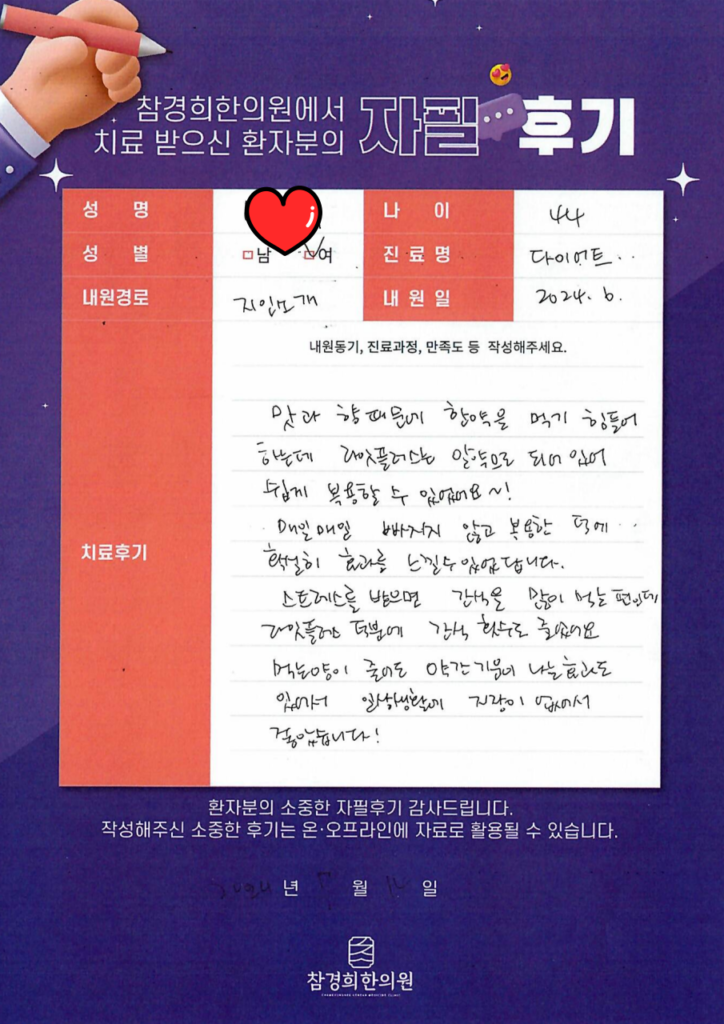 참경희한의원에서
치료 받으신 환자분의 자필 후기
성 명
나 이 44
성 별 남 여
진료명 다이어트..
내원경로 지인소개
내원일 2024. 6.
내원동기, 진료과정, 만족도 등 작성해주세요.
치료후기
맛과 향 때문에 한약을 먹기 힘들어
하는데 라잇플러스는 알약으로 되어 있어
쉽게 복용할 수 있었어요~!
매일매일 빠지지 않고 복용한 덕에..
확실히 효과를 느낄수 있었답니다.
스트레스를 받으면 간식을 많이 먹는 편인데
라잇플러스 덕분에 간식 횟수도 줄었어요
먹는양이 줄어도 약간 기운이 나는 효과도
있어서 일상생활에 지장이 없어서
좋았습니다!
환자분의 소중한 자필후기 감사드립니다.
작성해주신 소중한 후기는 온·오프라인에 자료로 활용될 수 있습니다.
2024 년 월 12 일
참경희한의원